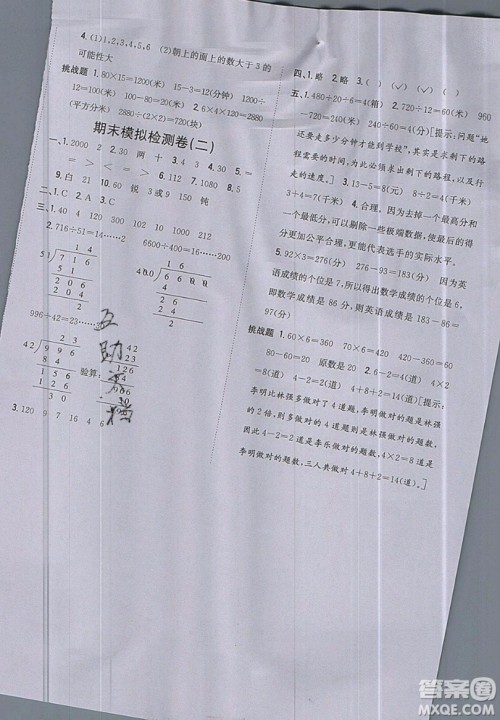 4. (1)1,2,3,4,5,6 (2)朝上的面上的数大于3的
可能性大
挑战题 1. 80×15=1200(米) 15-3=12(分钟) 1200÷
12=100(米) 1200÷15=80(米) 2. 6×4×120=2880
(平方分米) 2880÷(2×2)=720(块)
期末模拟检测卷(二)
一、1. 2000 2 2. 30 两 十 3. 4 3 4. 30
5. > = > < = > 6. 112 7. 1080 8. 5
9. 白 21 10. 60 锐 3或9 钝
二、1. C 2. A 3. C
三、1. 40 4 120 102 200 310 2
2. 716÷51=14……2 6600÷400=16……200
1 4
51 7 1 6
5 1
2 0 6
2 0 4
2
1 6
996÷42=23……
2 3
42 9 9 6
8 4
1 5 6
1 2 6
3 0
验算:
42
3. 120 9 7 16 4 6
互
助
四、1. 略 2. 略 3. ( ) (✓) (✓) ( )
五、1. 480÷20÷6=4(箱) 2. 60×12=720(米) 960
-720=240(米) 240÷60=4(分钟)[提示:问题“她
还要走多少分钟才能到学校”,其实是求剩下的路
程需要的时间,为此必须求出剩下的路程,再用剩
下的路程÷速度=时间] 3. 13-5=8(厘米) 8÷2=4(厘米)
3+4=7(厘米) 4. 合理。因为去掉一个最高分和
一个最低分,可以减少一些极端数据的影响,平均
分更加公平合理,更能代表选手的实际水平。
5. 92×3=276(分) 276-93=183(分) [提示:
英语成绩的个位是7,所以得出数学成绩的个位是6。
即数学成绩是86分,则英语成绩是183-86=
97(分)]
挑战题 1. 60×6=360 70×6=420 420-360=60
60÷15=4 原数是40 2. 4÷2=2(道) 4×2
=8(道) 4-2=2(道) 4+8+2=14(道)[提示:
李明做对的题数比李乐多做对4道题,就是比林强
的2倍,则多做对的4道题就是林强做对的题数,
因此4-2=2道是李乐做对的题数,4×2=8(道)是
李明做对的题数,三人共做对4+8+2=14(道)。]
答案圈
MXQE.COM